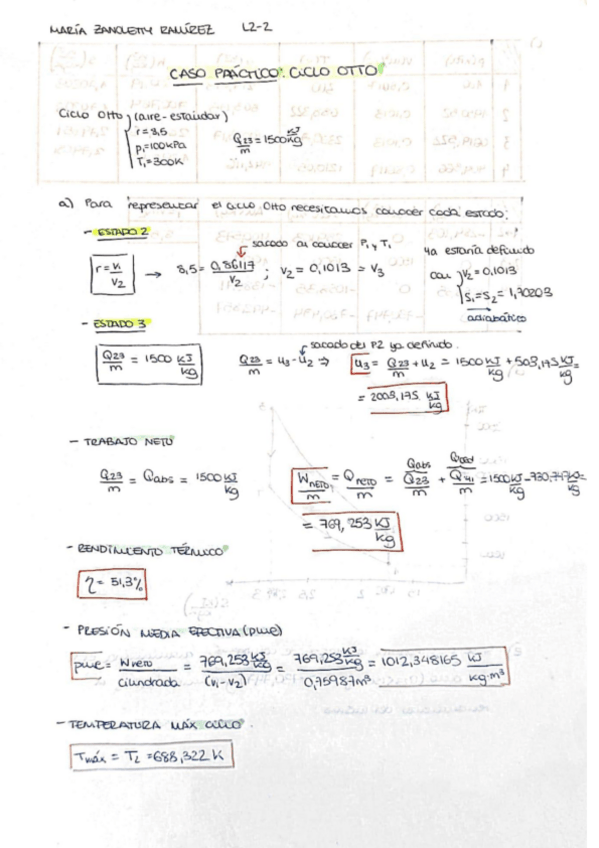 MARÍA ZANOLETTY RAMÍREZ L2-2
CASO PRÁCTICO: CICLO OTTO
Ciclo Otto (aire-estándar)
r = 8,5
P₁ = 100 kPa
T₁ = 300K
Q23/m = 1500 kJ/kg
a) Para representar el ciclo Otto necesitamos conocer cada estado:
- ESTADO 2
sacado al conocer P₁ y T₁
r = V₁/V₂ → 8,5 = 0,86117/V₂ ; V₂ = 0,1013 = V₃
4a estaría definido
con V₂ = 0,1013
S₁ = S₂ = 1,70203
adiabático
- ESTADO 3
sacado del P2 ya definido.
Q23/m = 1500 kJ/kg Q23/m = u₃ - u₂ ⇒ u₃ = Q23/m + u₂ = 1500 kJ/kg + 508,175 kJ/kg =
= 2008,175 kJ/kg
- TRABAJO NETO
Q23/m = Qabs = 1500 kJ/kg
Qabs Qced
WNETO/m = QNETO/m = Q23/m + Q41/m = 1500 kJ/kg - 730,747 kJ/kg =
= 769,253 kJ/kg
- RENDIMIENTO TÉRMICO
η = 51,3%
- PRESIÓN MEDIA EFECTIVA (pme)
pme = WNETO/cilindrada = 769,253 kJ/kg/(V₁-V₂) = 769,253 kJ/kg/0,75987m³ = 1012,348165 kJ/kg·m³
- TEMPERATURA MÁX CICLO.
Tmáx = T₂ = 688,322 K